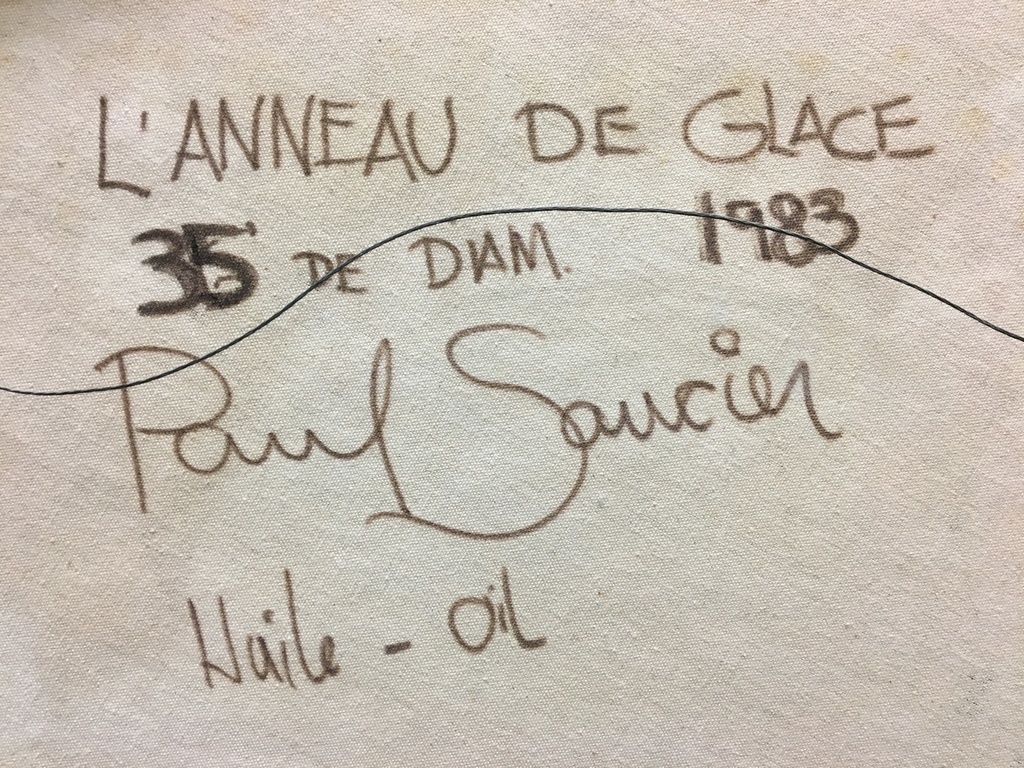 L'ANNEAU DE GLACE
35" DE DIAM. 1983
Paul Saucier
Huile - Oil